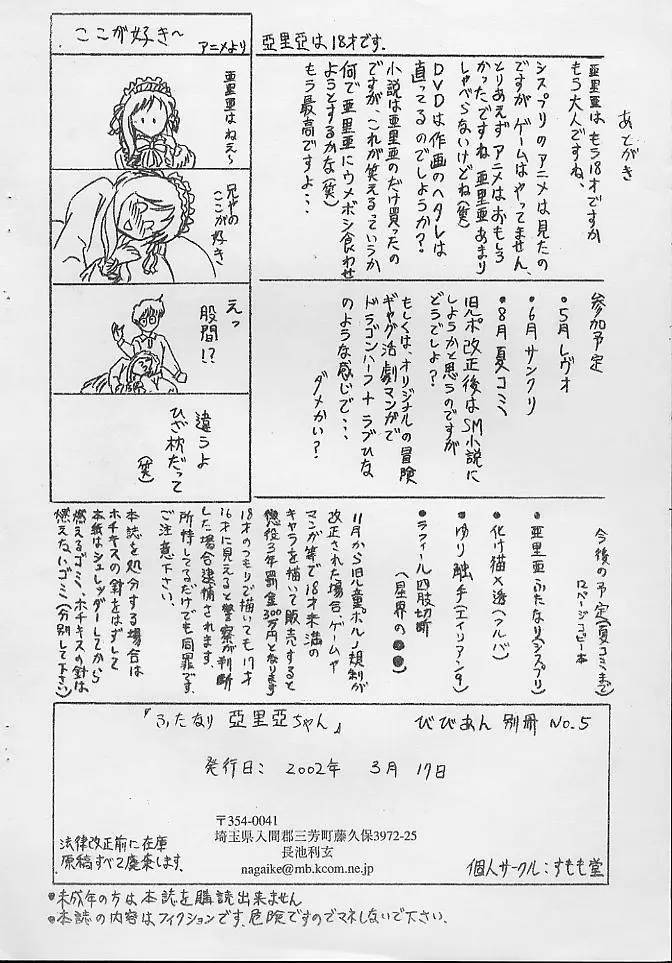 ここが好き～
アニメより
亜里亜はねえ～
兄やの
ここが好き
えっ
股間!?
違うよ
ひざ枕だって
(笑)
亜里亜は18才です.
あとがき
亜里亜はもう18才ですか
もう大人ですね、
シスプリのアニメは見たの
ですがゲームはやってません、
とりあえずアニメはおもしろ
かったですね 亜里亜あまり
しゃべらないけどね(笑)
DVDは作画のヘタレは
直ってるのでしょうか?
小説は亜里亜のだけ買ったの
ですが、これが笑えるっていうか
何で亜里亜にウメボシ食わせ
ようとするかな(笑)
もう最高ですよ・・・
参加予定
・5月レヴォ
・6月サンクリ
・8月夏コミ
児ポ改正後はSM小説に
しようかと思うのですが
どうでしょ?
もしくは、オリジナルの冒険
ギャグ活劇マンガで
ドラゴンハーフ+ラブひな
のような感じで・・・
ダメかい?
今後の予定(夏コミまで)
12ページコピー本
●亜里亜ふたなり(シスプリ)
●化け猫×透(フルバ)
●ゆり触手(エイリアン9)
●ラフィール四肢切断
(星界の●●)
11月から児童ポルノ規制が
改正された場合、ゲームや
マンガ等で18才未満の
キャラを描いて販売すると
懲役3年罰金300万円となります
18才のつもりで描いても17才
16才に見えると警察が判断
した場合逮捕されます.
所持してるだけでも同罪です
ご注意下さい.
本誌を処分する場合は
ホチキスの針をはずして
本紙はシュレッダーしてから
燃えるゴミ、ホチキスの針は
燃えないゴミ(分別して下さい)
『ふたなり 亜里亜ちゃん』
びびあん 別冊 No.5
発行日: 2002年 3月 17日
〒354-0041
埼玉県入間郡三芳町藤久保3972-25
長池利玄
nagaike@mb.kcom.ne.jp
法律改正前に在庫
原稿すべて廃棄します.
個人サークル:すもも堂
●未成年の方は本誌を購読出来ません
●本誌の内容はフィクションです.危険ですのでマネしないで下さい.